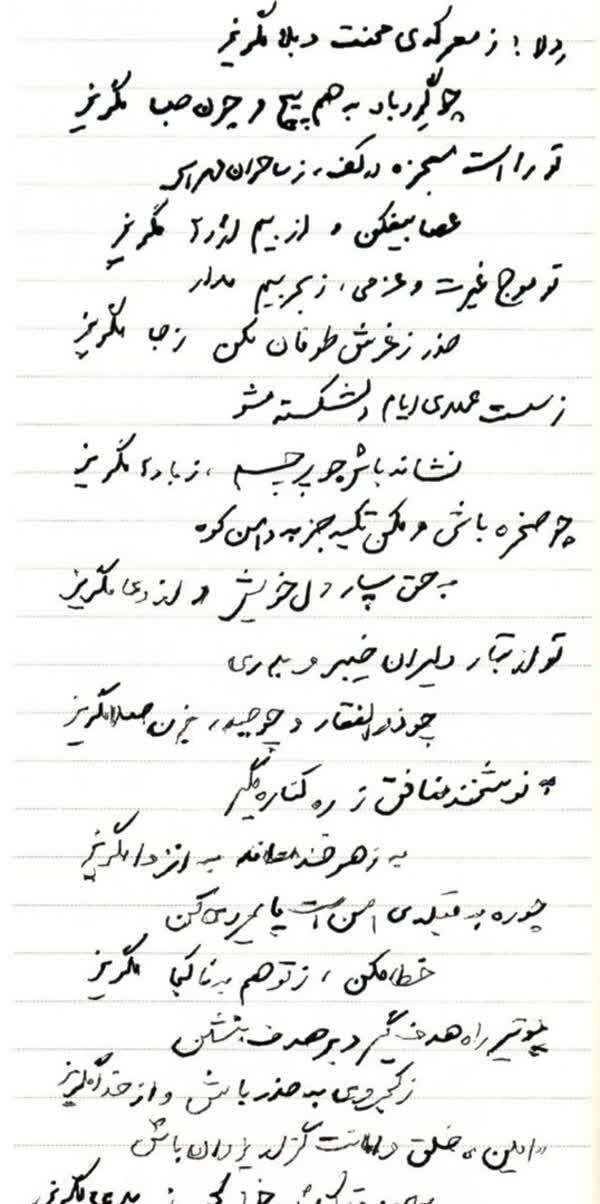 دلا! ز معرکه‌ی محنت و بلا مگریز
چو گردباد به هم پیچ و چون صبا مگریز
تو راست معجزه در کف، ز ساحران مهراس
عصا بیفکن و از بیم اژدها مگریز
تو موج غیرت و عزمی، ز بحر بیم مدار
حذر ز غرش طوفان مکن ز جا مگریز
ز سست عهدی ایام دلشکسته مشو
نشانه باش چو پرچم، ز بادها مگریز
چو صخره باش و مکن تکیه جز به دامن کوه
به حق سپار دل خویش و از دعا مگریز
تو از تبار دلیران خیبر و بدری
چو ذوالفقار و چو حیدر، بزن صلا مگریز
منافق ز ره کناره مگیر
به زهر خند به انزوا مگریز
چو ره به قبله‌ی امن است پایمردی کن
خطا مکن، ز توهم به ناکجا مگریز
چو تیر راه هدف گیر و بر هدف بنشین
ز کجروی به حذر باش و از خدا مگریز
«امین» خلق و امانت گزار یزدان باش